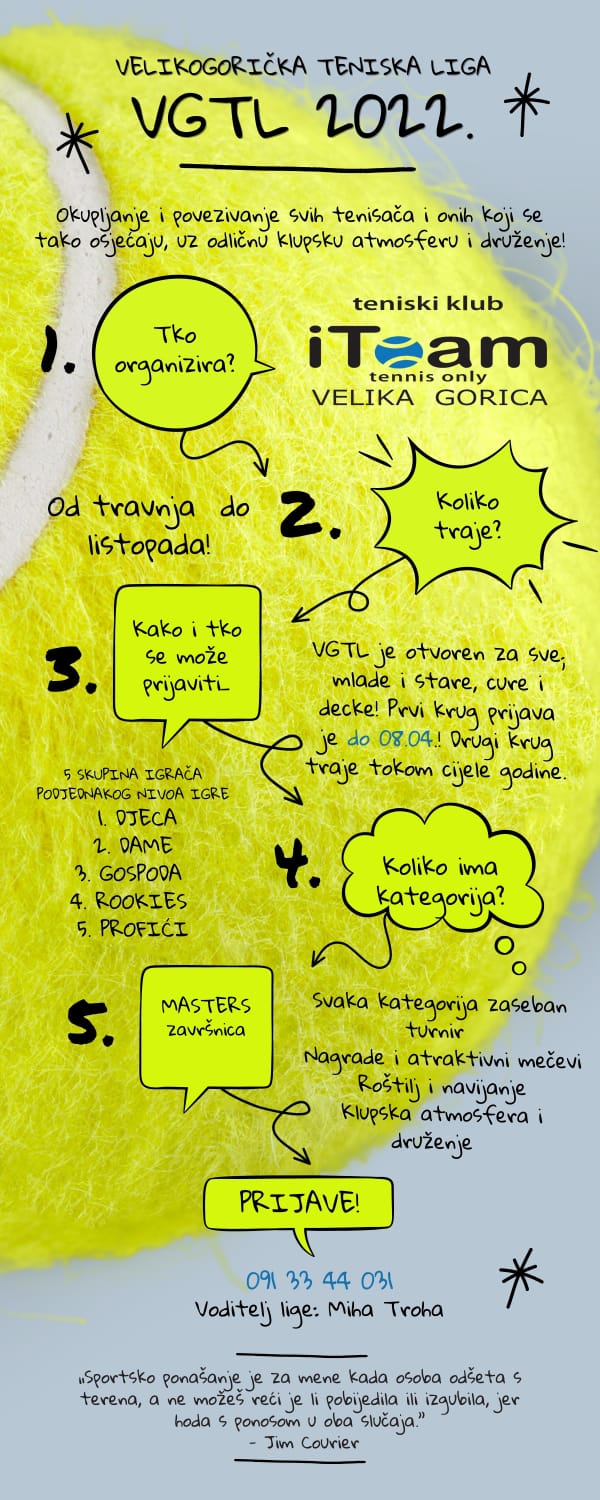 VELIKOGORIČKA TENISKA LIGA
VGTL 2022.
Okupljanje i povezivanje svih tenisača i onih koji se
tako osjećaju, uz odličnu klupsku atmosferu i druženje!
1.
Tko
organizira?
teniski klub
iTeam
tennis only
VELIKA GORICA
2.
Koliko
traje?
Od travnja do
listopada!
3.
Kako i tko
se može
prijaviti...
VGTL je otvoren za sve;
mlade i stare, cure i
decke! Prvi krug prijava
je do 08.04.! Drugi krug
traje tokom cijele godine.
4.
Koliko ima
kategorija?
5 SKUPINA IGRAČA
PODJEDNAKOG NIVOA IGRE
1. DJECA
2. DAME
3. GOSPODA
4. ROOKIES
5. PROFIĆI
5.
MASTERS
završnica
Svaka kategorija zaseban
turnir
Nagrade i atraktivni mečevi
Roštilj i navijanje
Klupska atmosfera i
druženje
PRIJAVE!
091 33 44 031
Voditelj lige: Miha Troha
„Sportsko ponašanje je za mene kada osoba odšeta s
terena, a ne možeš reći je li pobijedila ili izgubila, jer
hoda s ponosom u oba slučaja.”
- Jim Courier